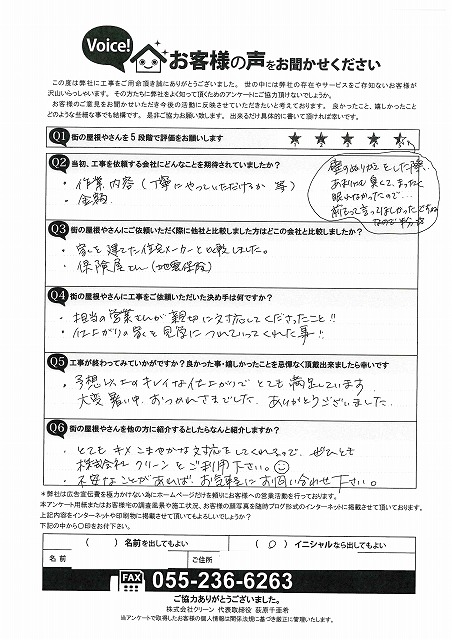 Voice!
お客様の声をお聞かせください
この度は弊社に工事をご用命頂き誠にありがとうございました。世の中には弊社の存在やサービスをご存知ないお客様が
沢山いらっしゃいます。その方たちに弊社をよく知って頂くためのアンケートにご協力頂けないでしょうか。
お客様のご意見をお聞かせいただき今後の活動に反映させていただきたいと考えております。良かったこと、嬉しかったこと
どのような些細な事でも結構です。是非ご協力お願い致します。出来るだけ具体的に書いて頂ければ幸いです。
Q1 街の屋根やさんを5段階で評価をお願いします ★ ★ ★ ★ ★
Q2 当初、工事を依頼する会社にどんなことを期待されていましたか?
・作業内容(丁寧にやっていただけるか 等)
・金額
壁のぬりかえをした際、
あまりにも臭くて、まったく
眠れなかったので…
前もって言ってほしかったですね
Q3 街の屋根やさんにご依頼いただく際に他社と比較しました方はどこの会社と比較しましたか?
・家を建てた住宅メーカーと比較しました。
・保険屋さん(地震保険)
Q4 街の屋根やさんに工事をご依頼いただいた決め手は何ですか?
・担当の営業さんが親切に対応してくださったこと!!
・仕上がりの家を見学につれていってくれた事!!
Q5 工事が終わってみていかがですか?良かった事・嬉しかったことを忌憚なく頂戴出来ましたら幸いです
・予想以上のキレイな仕上がりでとても満足しています。
大変暑い中、おつかれさまでした。ありがとうございました。
Q6 街の屋根やさんを他の方に紹介するとしたらなんと紹介しますか?
・とてもキメこまやかな対応をしてくれるので、ぜひとも
株式会社クリーンをご利用下さい。
・不安なことがあれば、お気軽にお問い合わせ下さい。
＊弊社は広告宣伝費を極力かけない為にホームページだけを頼りにお客様への営業活動を行っております。
本アンケート用紙またはお客様宅の調査風景や施工状況、お客様の顔写真を随時ブログ形式のインターネットに掲載させて頂いております。
上記内容をインターネットや印刷物に掲載させて頂いてもよろしいでしょうか?
下記の中から〇印をお付下さい。
( )名前を出してもよい (○)イニシャルなら出してもよい
名前 ご住所
FAX 055-236-6263
ご協力ありがとうございました。
株式会社クリーン 代表取締役 荻原千亜希
当アンケートで取得したお客様の個人情報は関係法規に基づき厳正に管理いたします。